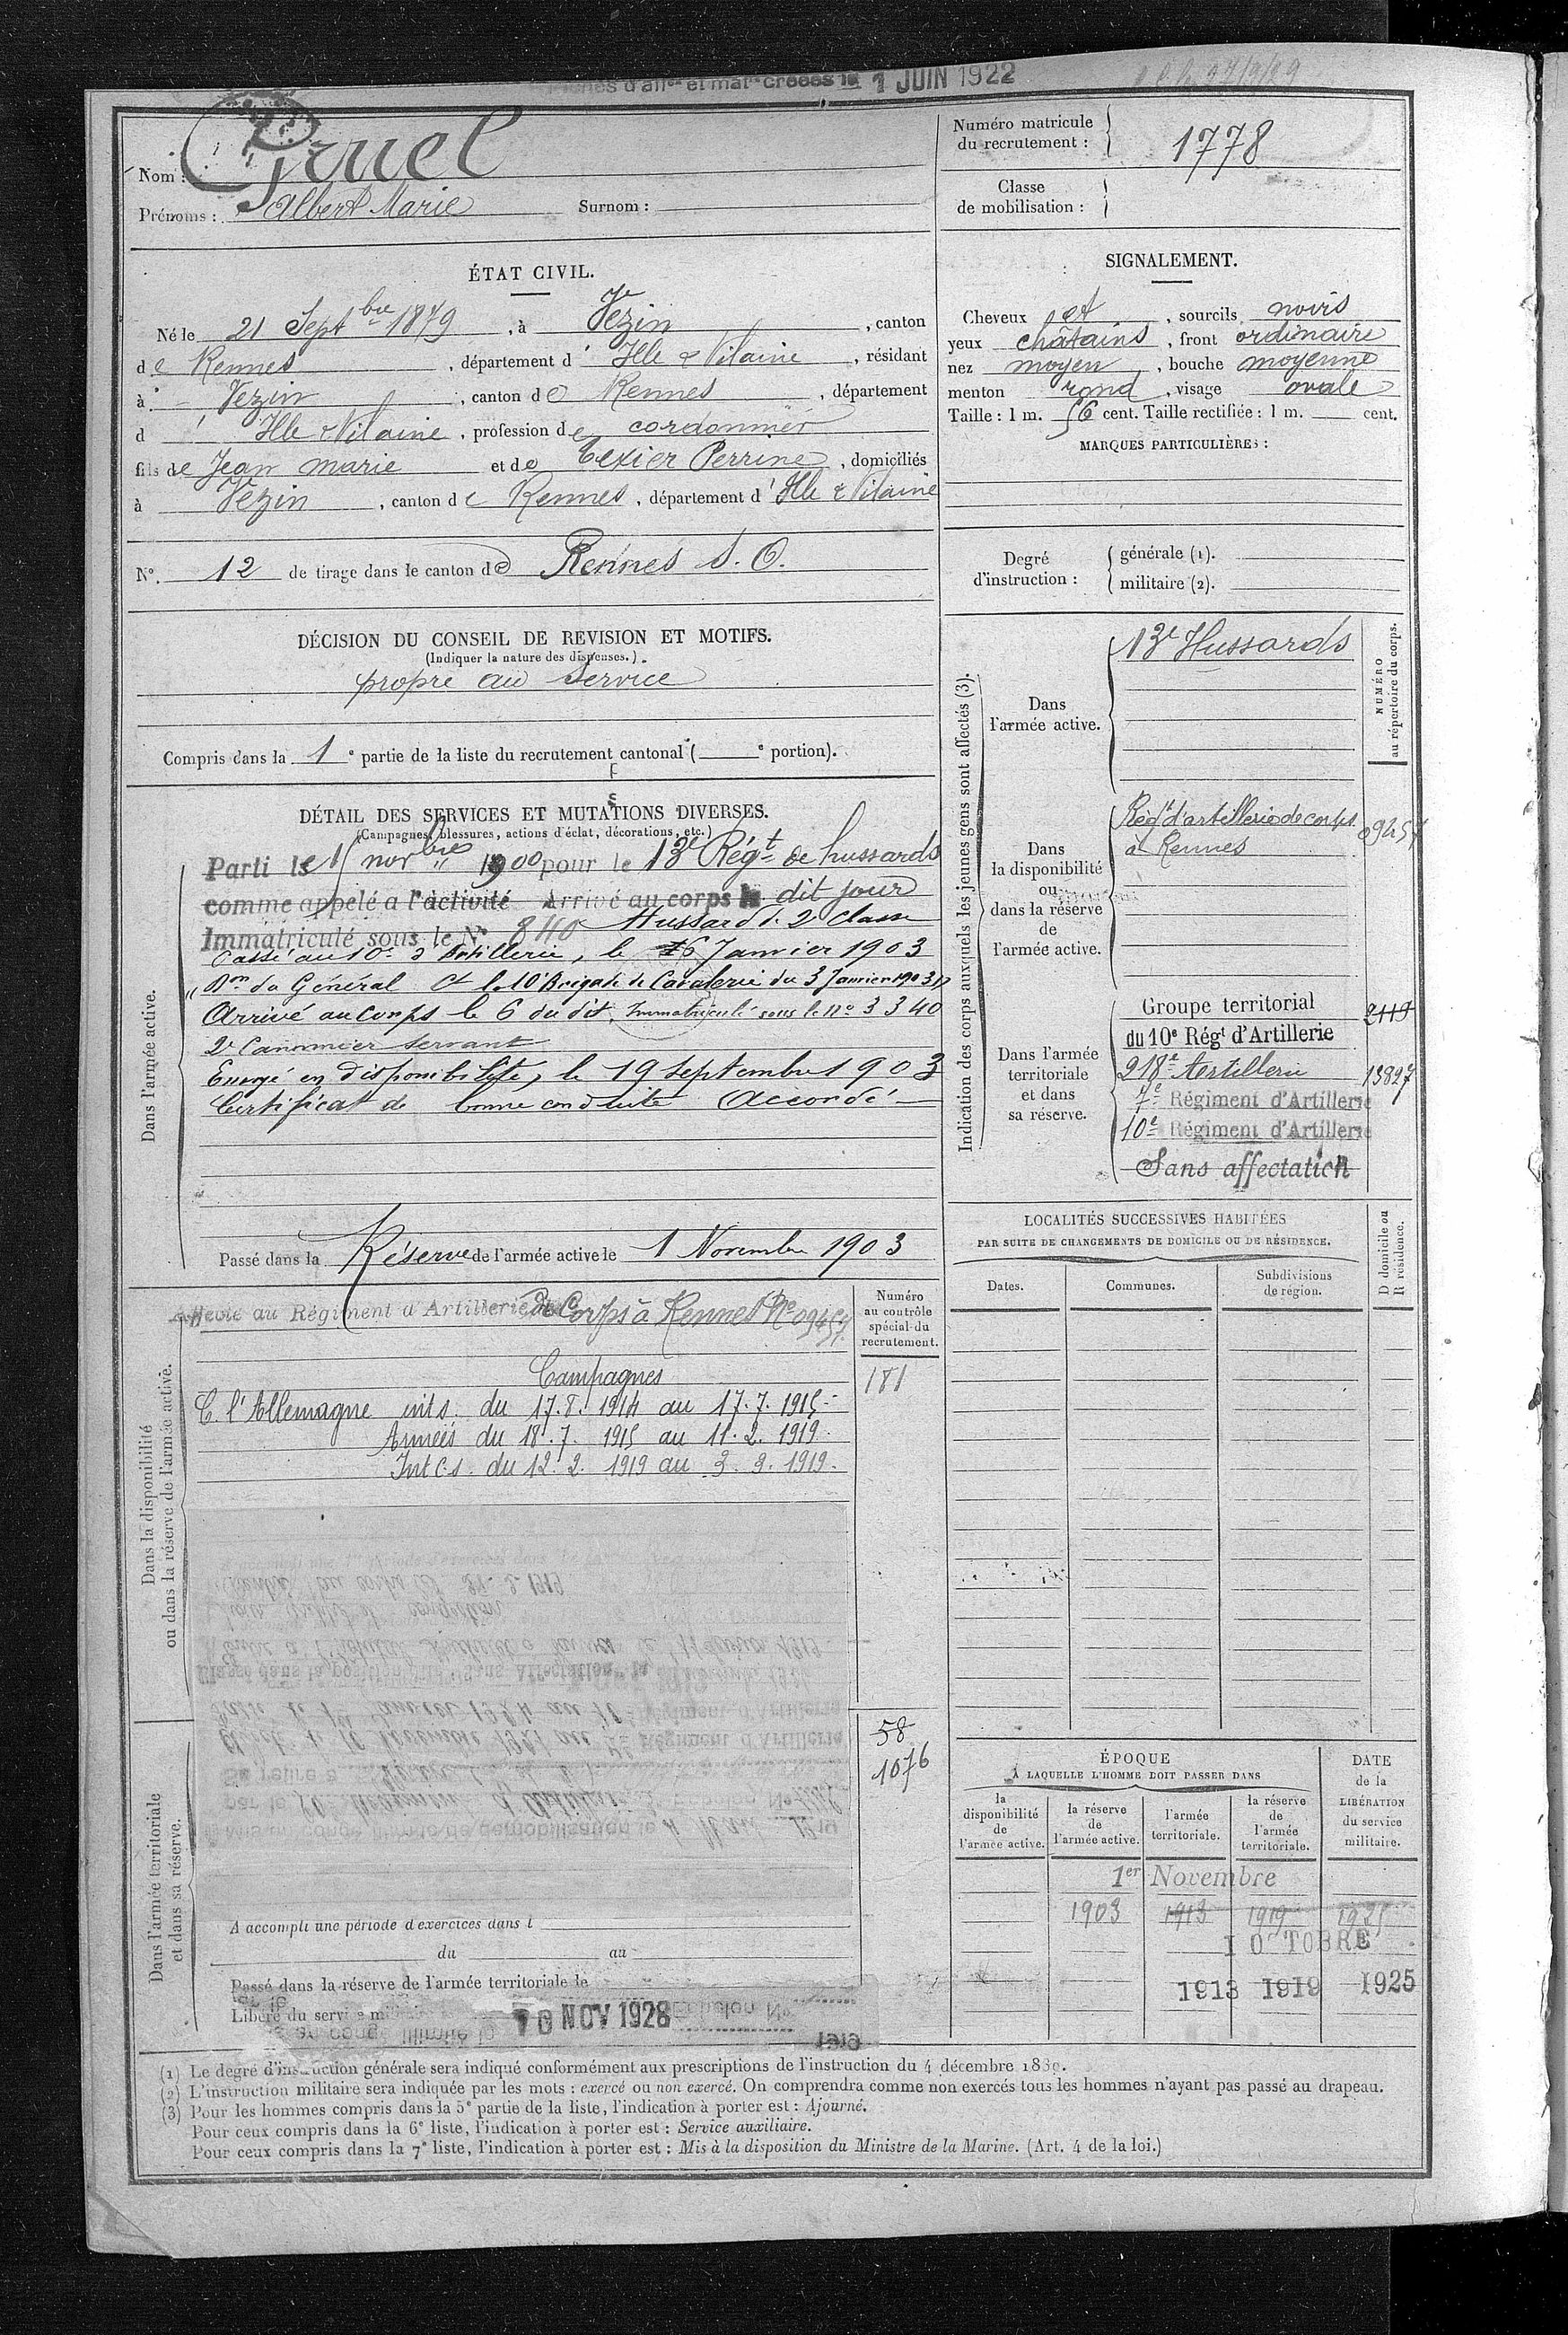 1 JUIN 1922
Nom : Gruel
Prénoms : Albert Marie Surnom :
Numéro matricule du recrutement : 1778
Classe de mobilisation :
ÉTAT CIVIL.
Né le 21 Septbre 1879, à Vezin, canton
de Rennes, département d'Ille & Vilaine, résidant
à Vezin, canton de Rennes, département
d'Ille & Vilaine, profession de cordonnier
fils de Jean Marie et de Texier Perrine, domiciliés
à Vezin, canton de Rennes, département d'Ille & Vilaine
N°. 12 de tirage dans le canton de Rennes S. O.
SIGNALEMENT.
Cheveux et, sourcils noirs
yeux châtains, front ordinaire
nez moyen, bouche moyenne
menton rond, visage ovale
Taille : 1 m. 56 cent. Taille rectifiée : 1 m. cent.
MARQUES PARTICULIÈRES :
Degré d'instruction :
générale (1).
militaire (2).
DÉCISION DU CONSEIL DE REVISION ET MOTIFS.
(Indiquer la nature des dispenses.)
propre au Service
Compris dans la 1e partie de la liste du recrutement cantonal ( e portion).
DÉTAIL DES SERVICES ET MUTATIONS DIVERSES.
(Campagnes, blessures, actions d'éclat, décorations, etc.)
Dans l'armée active.
Parti le 15 novbre 1900 pour le 13e Régt de hussards
comme appelé à l'activité Arrivé au corps le dit jour
Immatriculé sous le N° 840 Hussard de 2e classe
Passé au 10e d'Artillerie, le 6 Janvier 1903
"On du Général Ct la 10e Brigade de Cavalerie du 3 Janvier 1903"
Arrivé au corps le 6 du dit, Immatriculé sous le no 3340
2e Canonnier servant
Envoyé en disponibilité, le 19 septembre 1903
Certificat de bonne conduite Accordé
Passé dans la Réserve de l'armée active le 1 Novembre 1903
Indication des corps auxquels les jeunes gens sont affectés (3).
NUMÉRO au répertoire du corps.
Dans l'armée active.
13e Hussards
Dans la disponibilité ou dans la réserve de l'armée active.
Régt d'artillerie de corps 09457
à Rennes
Dans l'armée territoriale et dans sa réserve.
Groupe territorial 2119
du 10e Régt d'Artillerie
218e Artillerie 13827
7e Régiment d'Artillerie
10e Régiment d'Artillerie
Sans affectation
Dans la disponibilité ou dans la réserve de l'armée active.
Affecté au Régiment d'Artillerie de Corps à Rennes No 09457
Numéro au contrôle spécial du recrutement.
181
Campagnes
C. l'Allemagne int.s. du 17.8.1914 au 17.7.1915
Armées du 18.7.1915 au 11.2.1919
Int C.s. du 12.2.1919 au 3.3.1919
LOCALITÉS SUCCESSIVES HABITÉES
PAR SUITE DE CHANGEMENTS DE DOMICILE OU DE RÉSIDENCE.
Dates.
Communes.
Subdivisions de région.
D domicile ou R résidence.
Dans l'armée territoriale et dans sa réserve.
58
1076
A accompli une période d'exercices dans l
du au
Passé dans la réserve de l'armée territoriale le
Libéré du service m
10 NOV 1928
ÉPOQUE
À LAQUELLE L'HOMME DOIT PASSER DANS
la disponibilité de l'armée active.
la réserve de l'armée active.
l'armée territoriale.
la réserve de l'armée territoriale.
DATE de la LIBÉRATION du service militaire.
1er Novembre
1903 1913 1919 1925
1 O TOBRE
1913 1919 1925
(1) Le degré d'instruction générale sera indiqué conformément aux prescriptions de l'instruction du 4 décembre 1889.
(2) L'instruction militaire sera indiquée par les mots : exercé ou non exercé. On comprendra comme non exercés tous les hommes n'ayant pas passé au drapeau.
(3) Pour les hommes compris dans la 5e partie de la liste, l'indication à porter est : Ajourné.
Pour ceux compris dans la 6e liste, l'indication à porter est : Service auxiliaire.
Pour ceux compris dans la 7e liste, l'indication à porter est : Mis à la disposition du Ministre de la Marine. (Art. 4 de la loi.)